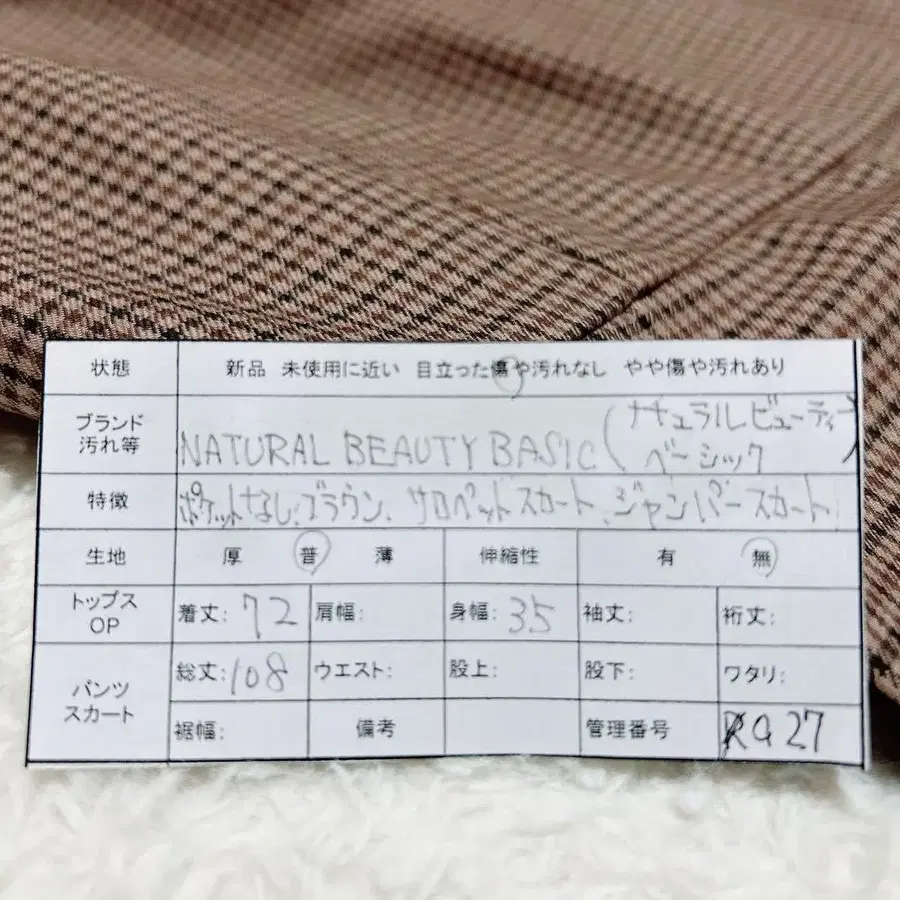 状態 新品 未使用に近い 目立った傷や汚れなし やや傷や汚れあり
ブランド 汚れ等 NATURAL BEAUTY BASIC (ナチュラルビューティ ベーシック)
特徴 ポケットなし、ブラウン、サロペットスカート、ジャンパースカート
生地 厚 普 薄 伸縮性 有 無
トップス OP 着丈: 72 肩幅: 身幅: 35 袖丈: 裄丈:
パンツ スカート 総丈: 108 ウエスト: 股上: 股下: ワタリ:
裾幅: 備考 管理番号 RQ27